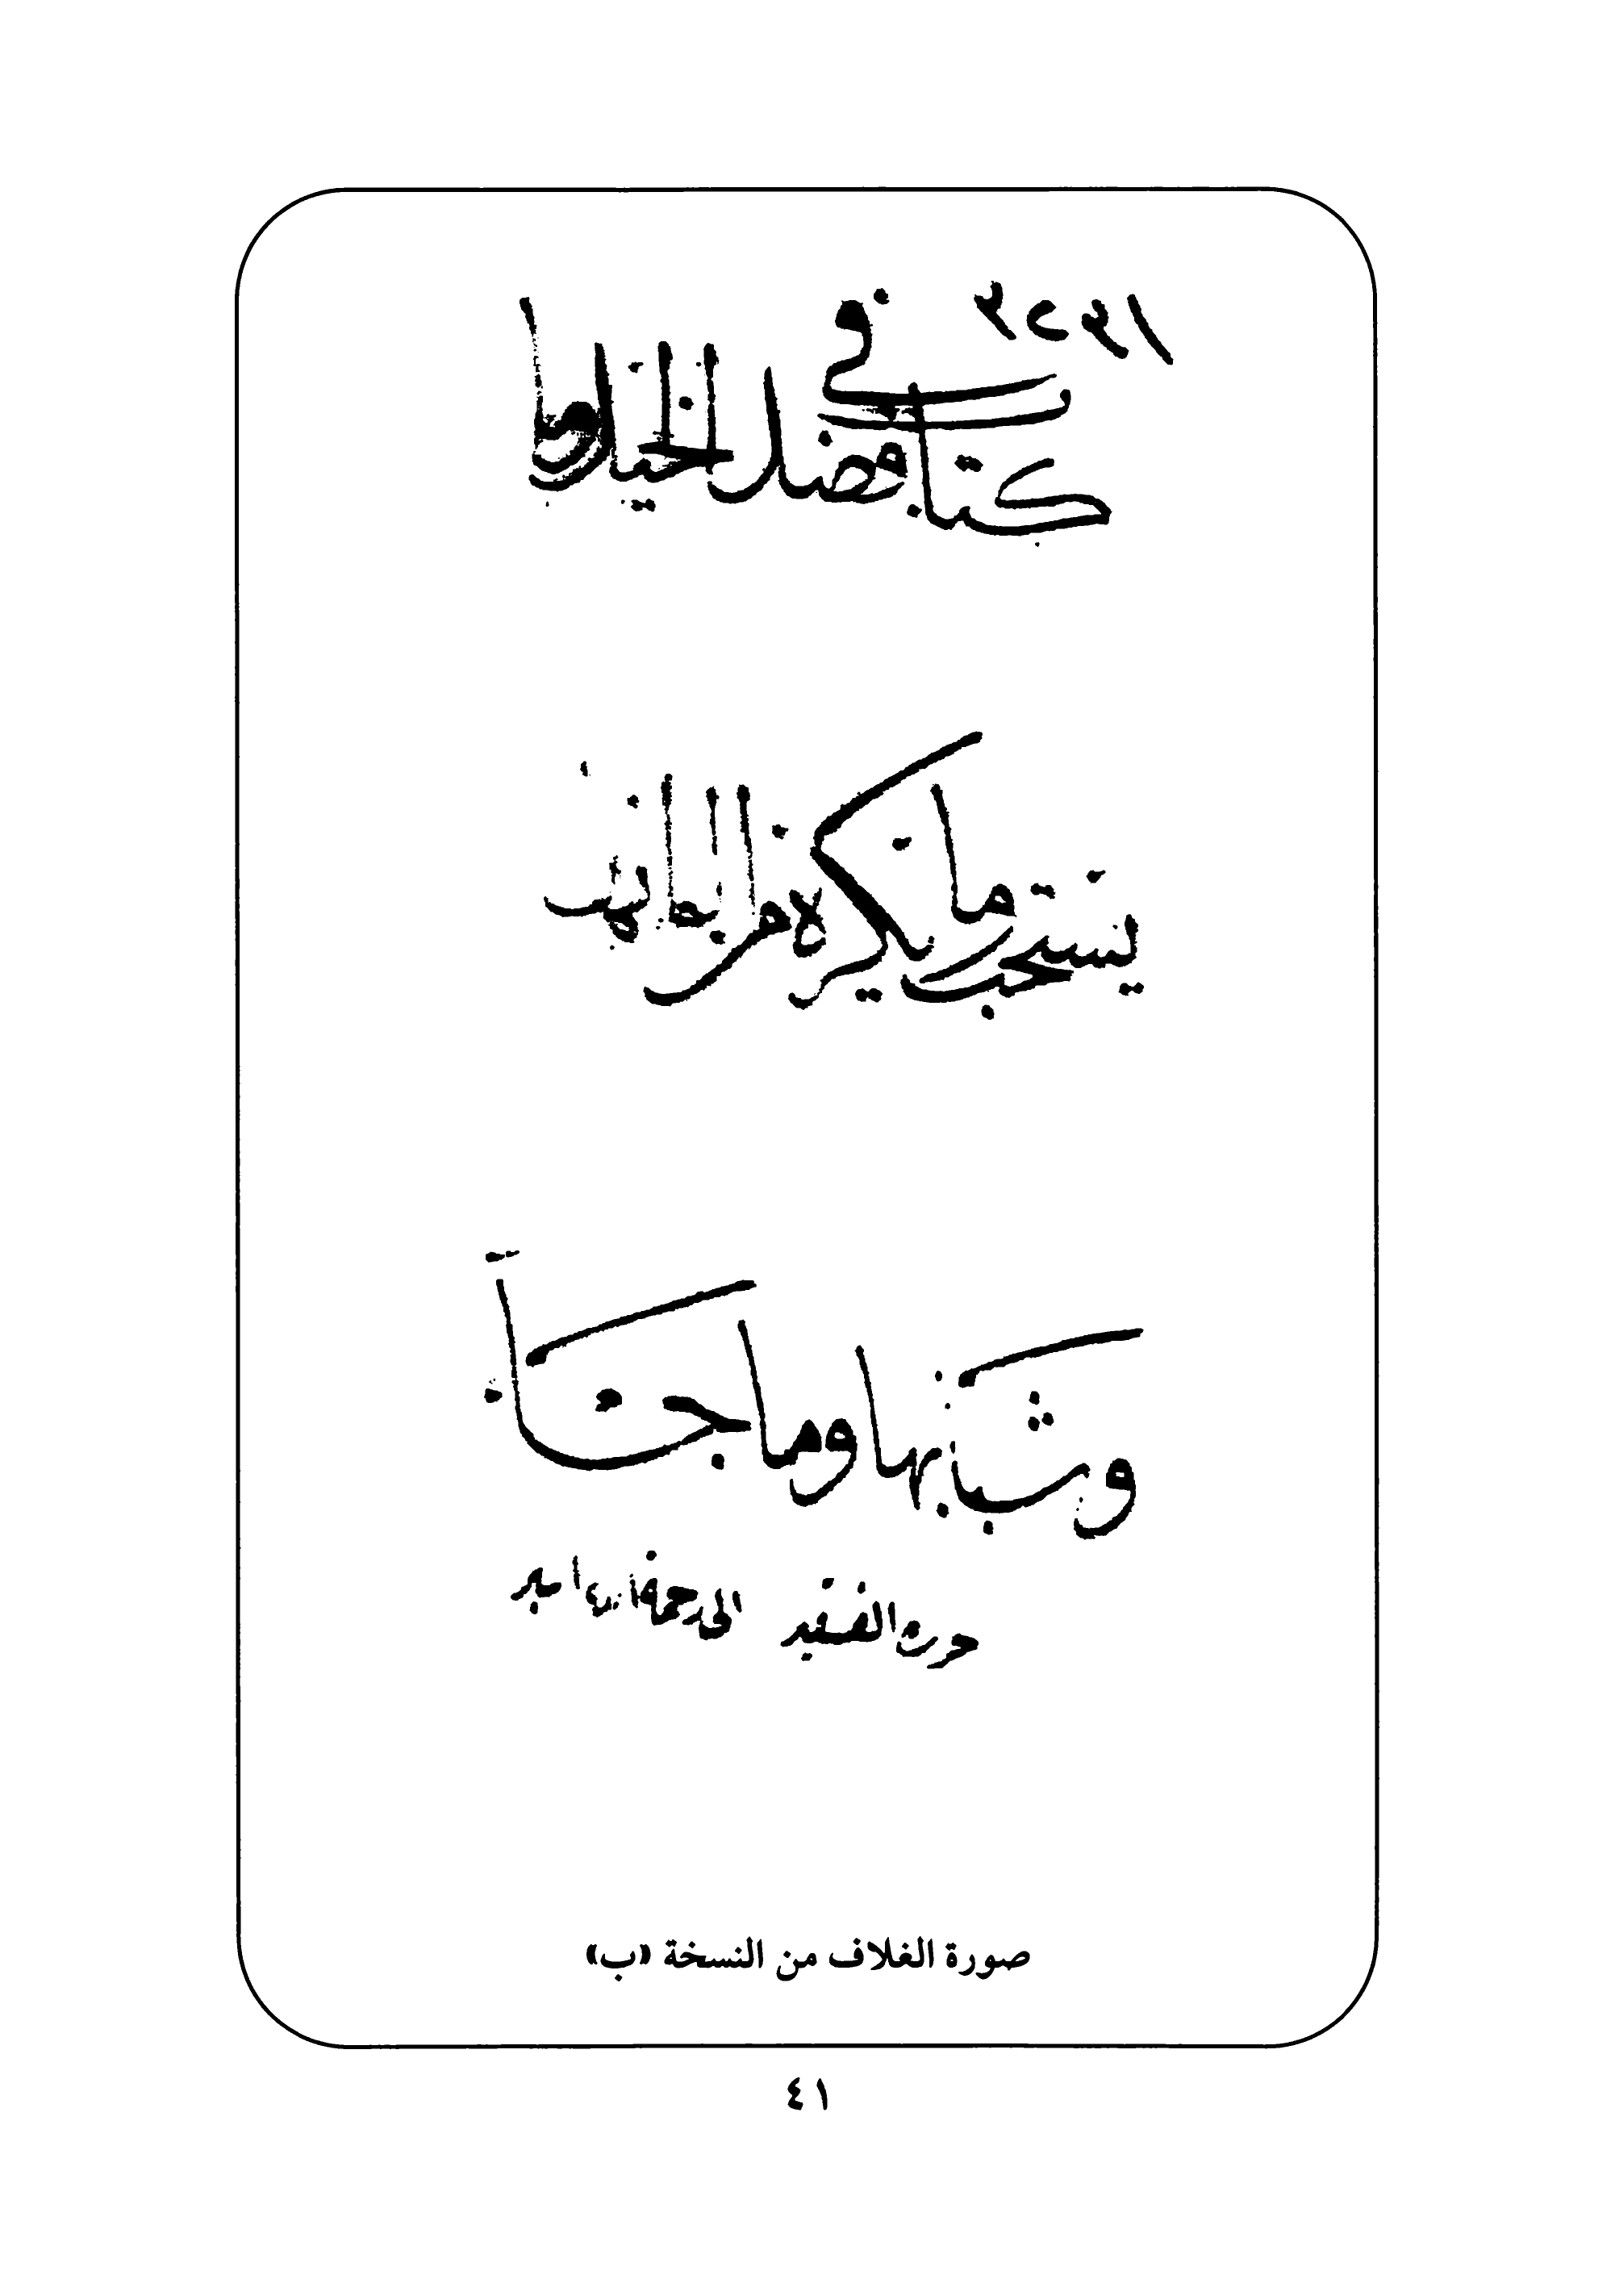 كتاب في فضل الخيل وما
يستحب وما يكره من ألوانها
وشيتها وما جاء
حرره الفقير الى رحمة
صورة الغلاف من النسخة «ب»
٤١